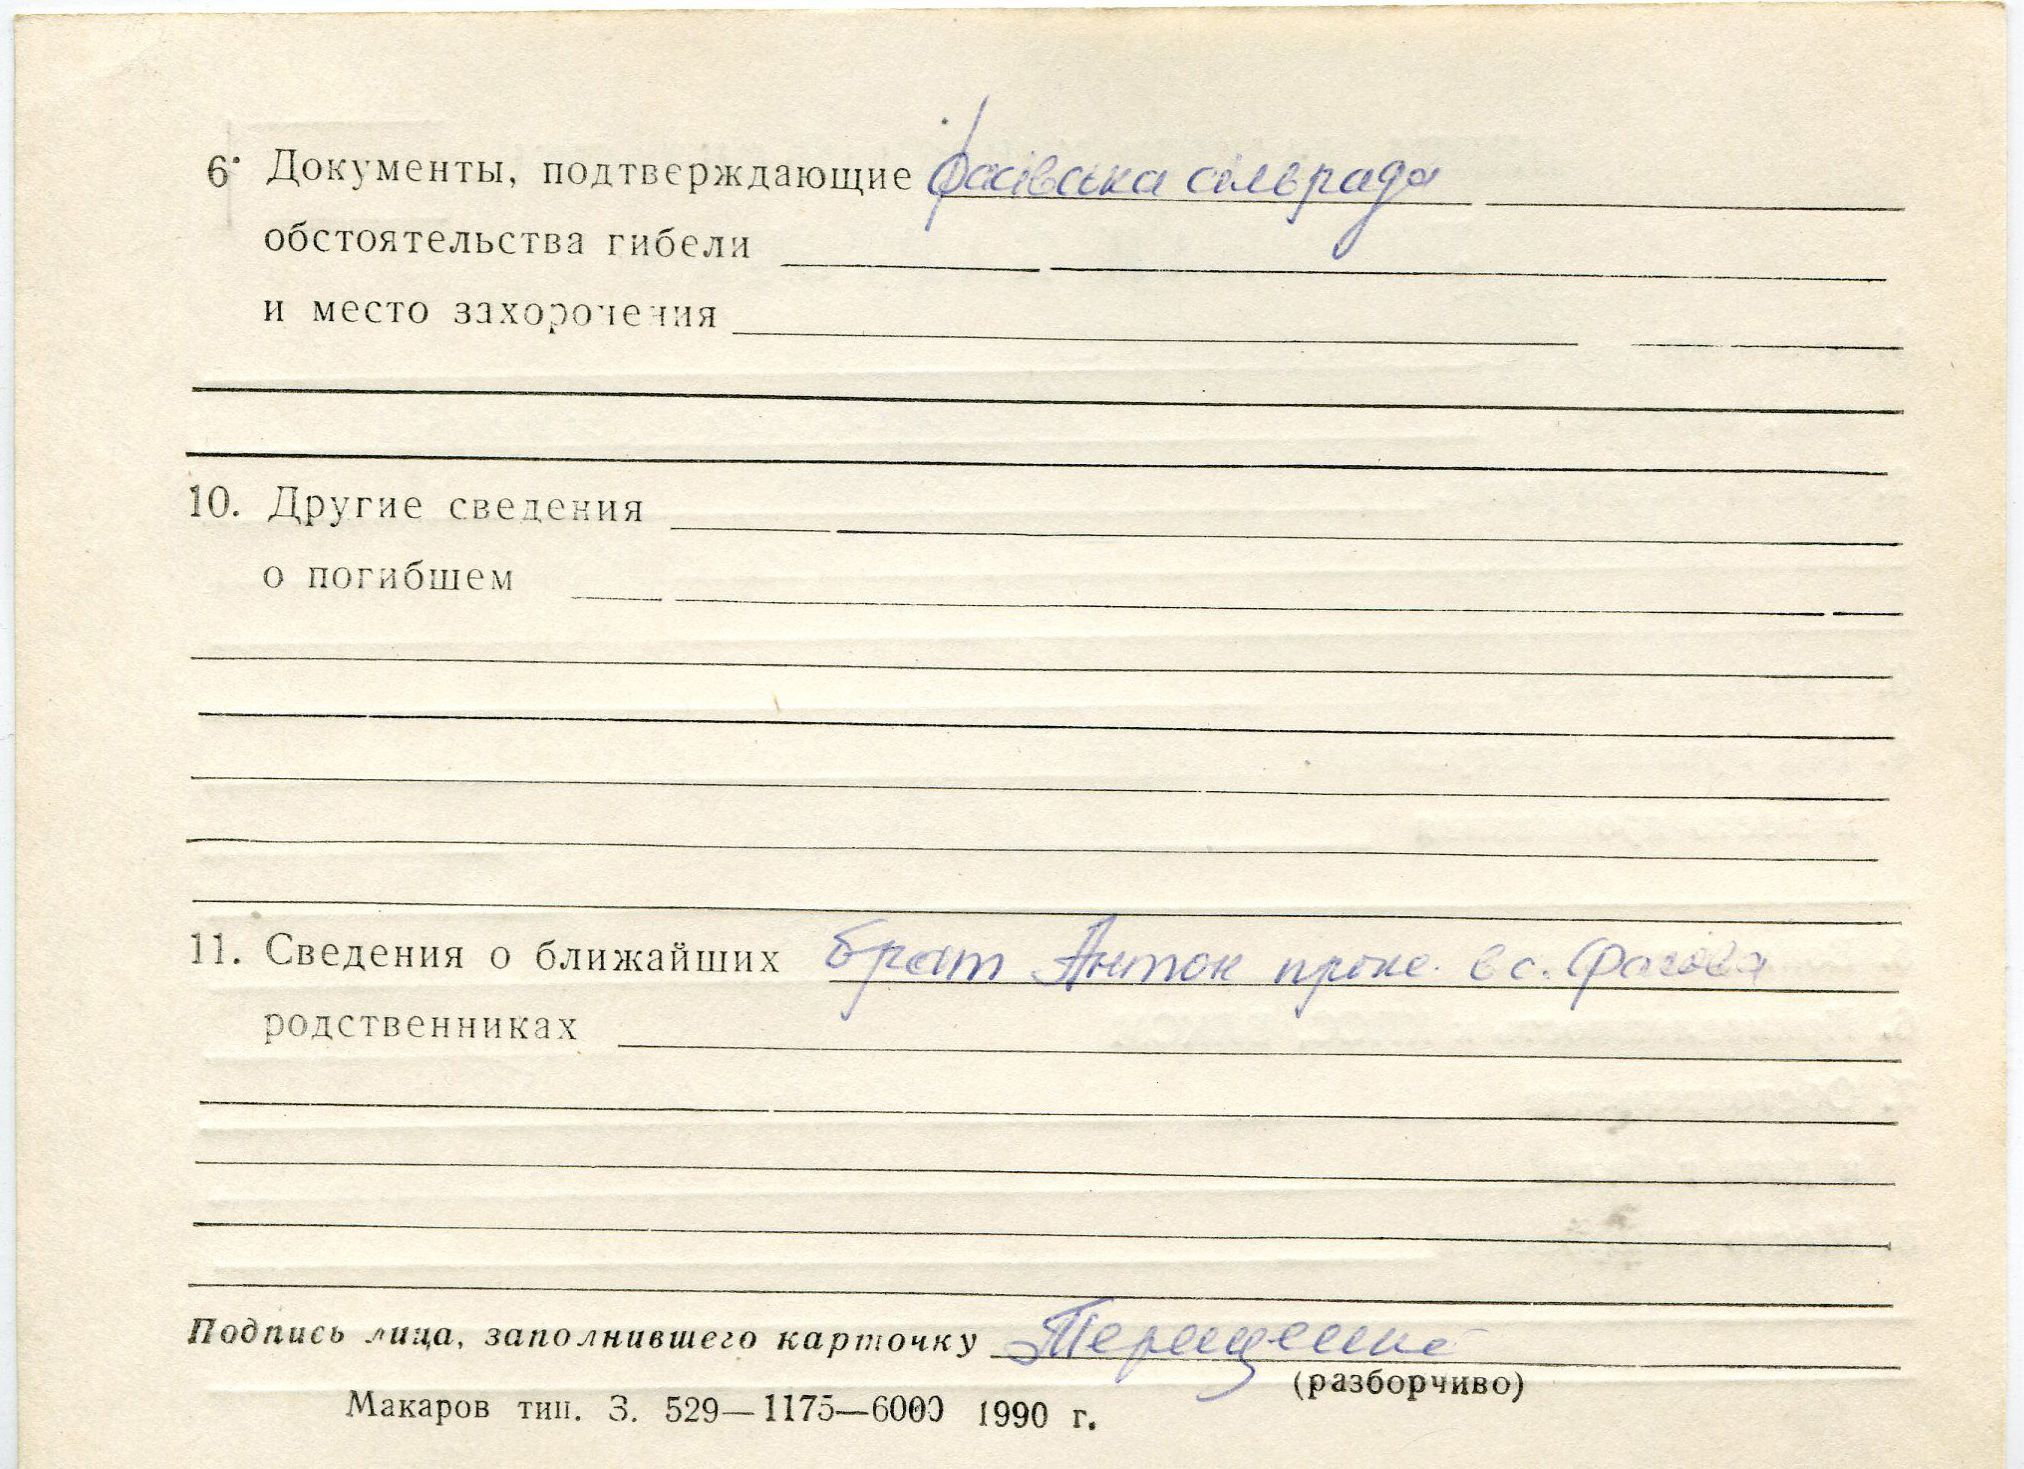 6. Документы, подтверждающие Фасівська сільрада
обстоятельства гибели
и место захоронения
10. Другие сведения
о погибшем
11. Сведения о ближайших брат Антон прож. в с. Фасова
родственниках
Подпись лица, заполнившего карточку
(разборчиво)
Макаров тип. З. 529—1175—6000 1990 г.